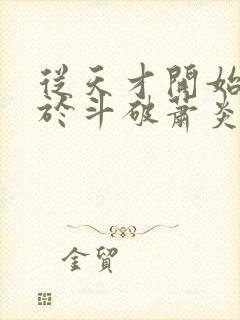 從天才開始
於斗破蕭炎
金貿